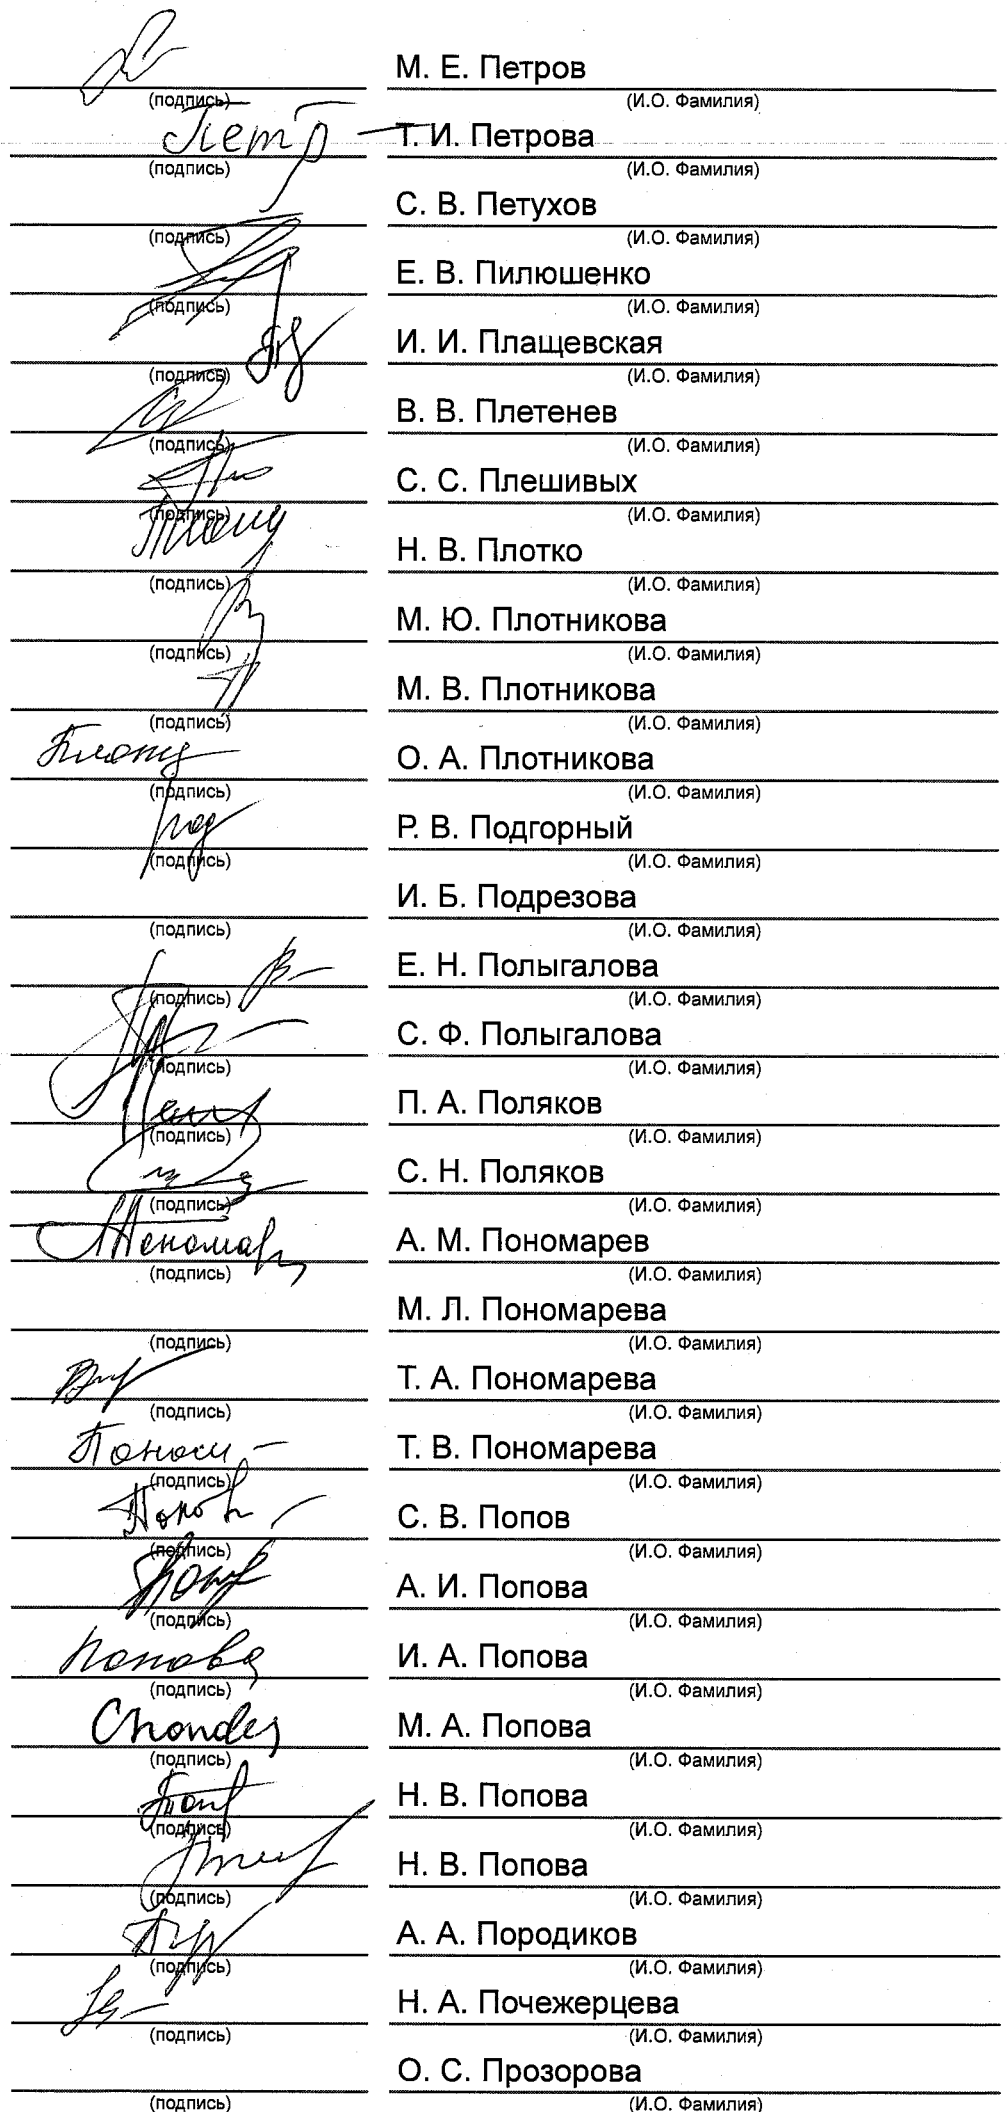 М. Е. Петров
(подпись) (И.О. Фамилия)
Петр Т. И. Петрова
(подпись) (И.О. Фамилия)
С. В. Петухов
(подпись) (И.О. Фамилия)
Е. В. Пилюшенко
(подпись) (И.О. Фамилия)
И. И. Плащевская
(подпись) (И.О. Фамилия)
В. В. Плетенев
(подпись) (И.О. Фамилия)
С. С. Плешивых
(подпись) (И.О. Фамилия)
Н. В. Плотко
(подпись) (И.О. Фамилия)
М. Ю. Плотникова
(подпись) (И.О. Фамилия)
М. В. Плотникова
(подпись) (И.О. Фамилия)
О. А. Плотникова
(подпись) (И.О. Фамилия)
Р. В. Подгорный
(подпись) (И.О. Фамилия)
И. Б. Подрезова
(подпись) (И.О. Фамилия)
Е. Н. Полыгалова
(подпись) (И.О. Фамилия)
С. Ф. Полыгалова
(подпись) (И.О. Фамилия)
П. А. Поляков
(подпись) (И.О. Фамилия)
С. Н. Поляков
(подпись) (И.О. Фамилия)
А. М. Пономарев
(подпись) (И.О. Фамилия)
М. Л. Пономарева
(подпись) (И.О. Фамилия)
Т. А. Пономарева
(подпись) (И.О. Фамилия)
Т. В. Пономарева
(подпись) (И.О. Фамилия)
С. В. Попов
(подпись) (И.О. Фамилия)
А. И. Попова
(подпись) (И.О. Фамилия)
Попова И. А. Попова
(подпись) (И.О. Фамилия)
М. А. Попова
(подпись) (И.О. Фамилия)
Н. В. Попова
(подпись) (И.О. Фамилия)
Н. В. Попова
(подпись) (И.О. Фамилия)
А. А. Породиков
(подпись) (И.О. Фамилия)
Н. А. Почежерцева
(подпись) (И.О. Фамилия)
О. С. Прозорова
(подпись) (И.О. Фамилия)